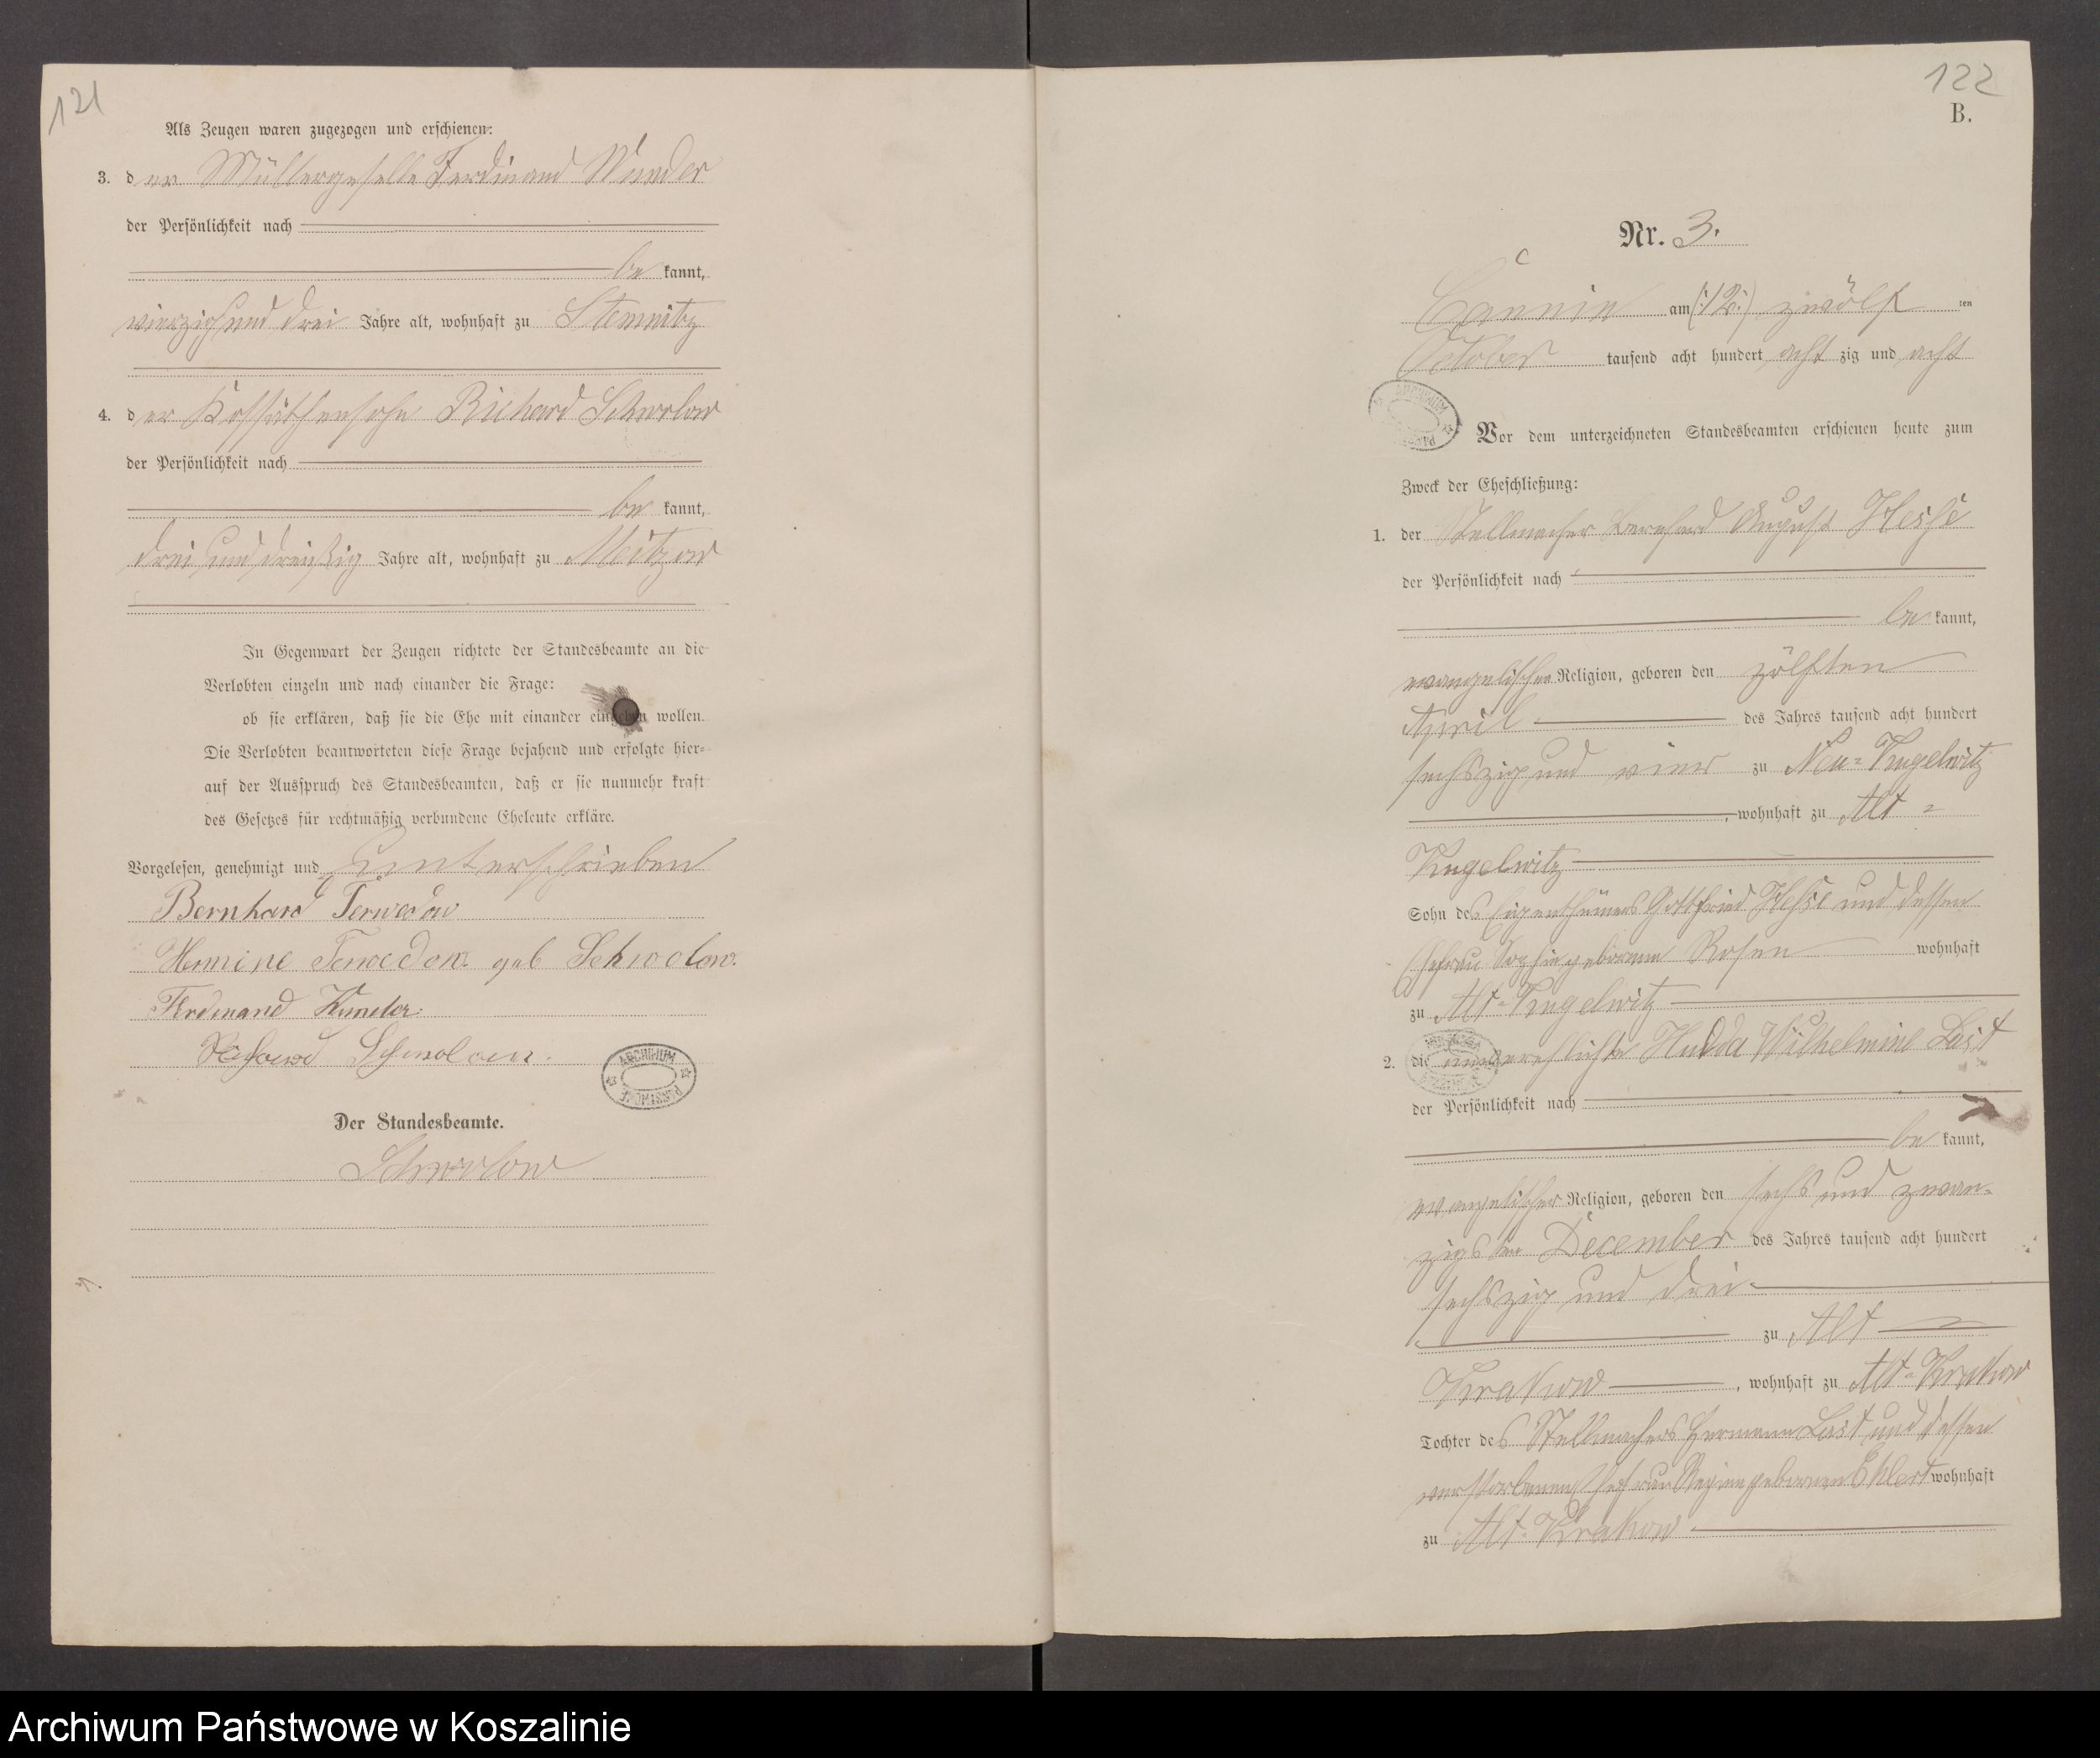 121
Als Zeugen waren zugezogen und erschienen:
3. der Müllergeselle Ferdinand Wunder
der Persönlichkeit nach
be kannt,
vierzig und drei Jahre alt, wohnhaft zu Stemnitz
4. der Kossäthensohn Richard Schwolow
der Persönlichkeit nach
be kannt,
drei und dreißig Jahre alt, wohnhaft zu Meitzow
In Gegenwart der Zeugen richtete der Standesbeamte an die
Verlobten einzeln und nach einander die Frage:
ob sie erklären, daß sie die Ehe mit einander eingehen wollen.
Die Verlobten beantworteten diese Frage bejahend und erfolgte hier-
auf der Ausspruch des Standesbeamten, daß er sie nunmehr kraft
des Gesetzes für rechtmäßig verbundene Eheleute erkläre.
Vorgelesen, genehmigt und unterschrieben
Bernhard
Hermine geb Schwolow.
Ferdinand Wunder
Richard Schwolow.
ARCHIWUM PAŃSTWOWE
Der Standesbeamte.
Schwolow
122
B.
Nr. 3.
Cannin am (:12:) zwölf ten
October tausend acht hundert acht zig und acht
ARCHIWUM
Vor dem unterzeichneten Standesbeamten erschienen heute zum
Zweck der Eheschließung:
1. der Stellmacher Bernhard August Hesse
der Persönlichkeit nach
be kannt,
evangelischer Religion, geboren den zölften
April des Jahres tausend acht hundert
sechszig und vier zu Neu-Kugelwitz
, wohnhaft zu Alt-
Kugelwitz
Sohn des Eigenthümers Gottfried Hesse und dessen
Ehefrau Sophie geborene Rosen wohnhaft
zu Alt-Kugelwitz
2. die unverehlichte Hulda Wilhelmine Last
der Persönlichkeit nach
be kannt,
evangelischer Religion, geboren den sechs und zwan-
zigsten December des Jahres tausend acht hundert
sechszig und drei
zu Alt-
Krakow , wohnhaft zu Alt-Krakow
Tochter des Stellmachers Hermann Last und dessen
verstorbenen Ehefrau geborenen Ehlert wohnhaft
zu Alt-Krakow
Archiwum Państwowe w Koszalinie